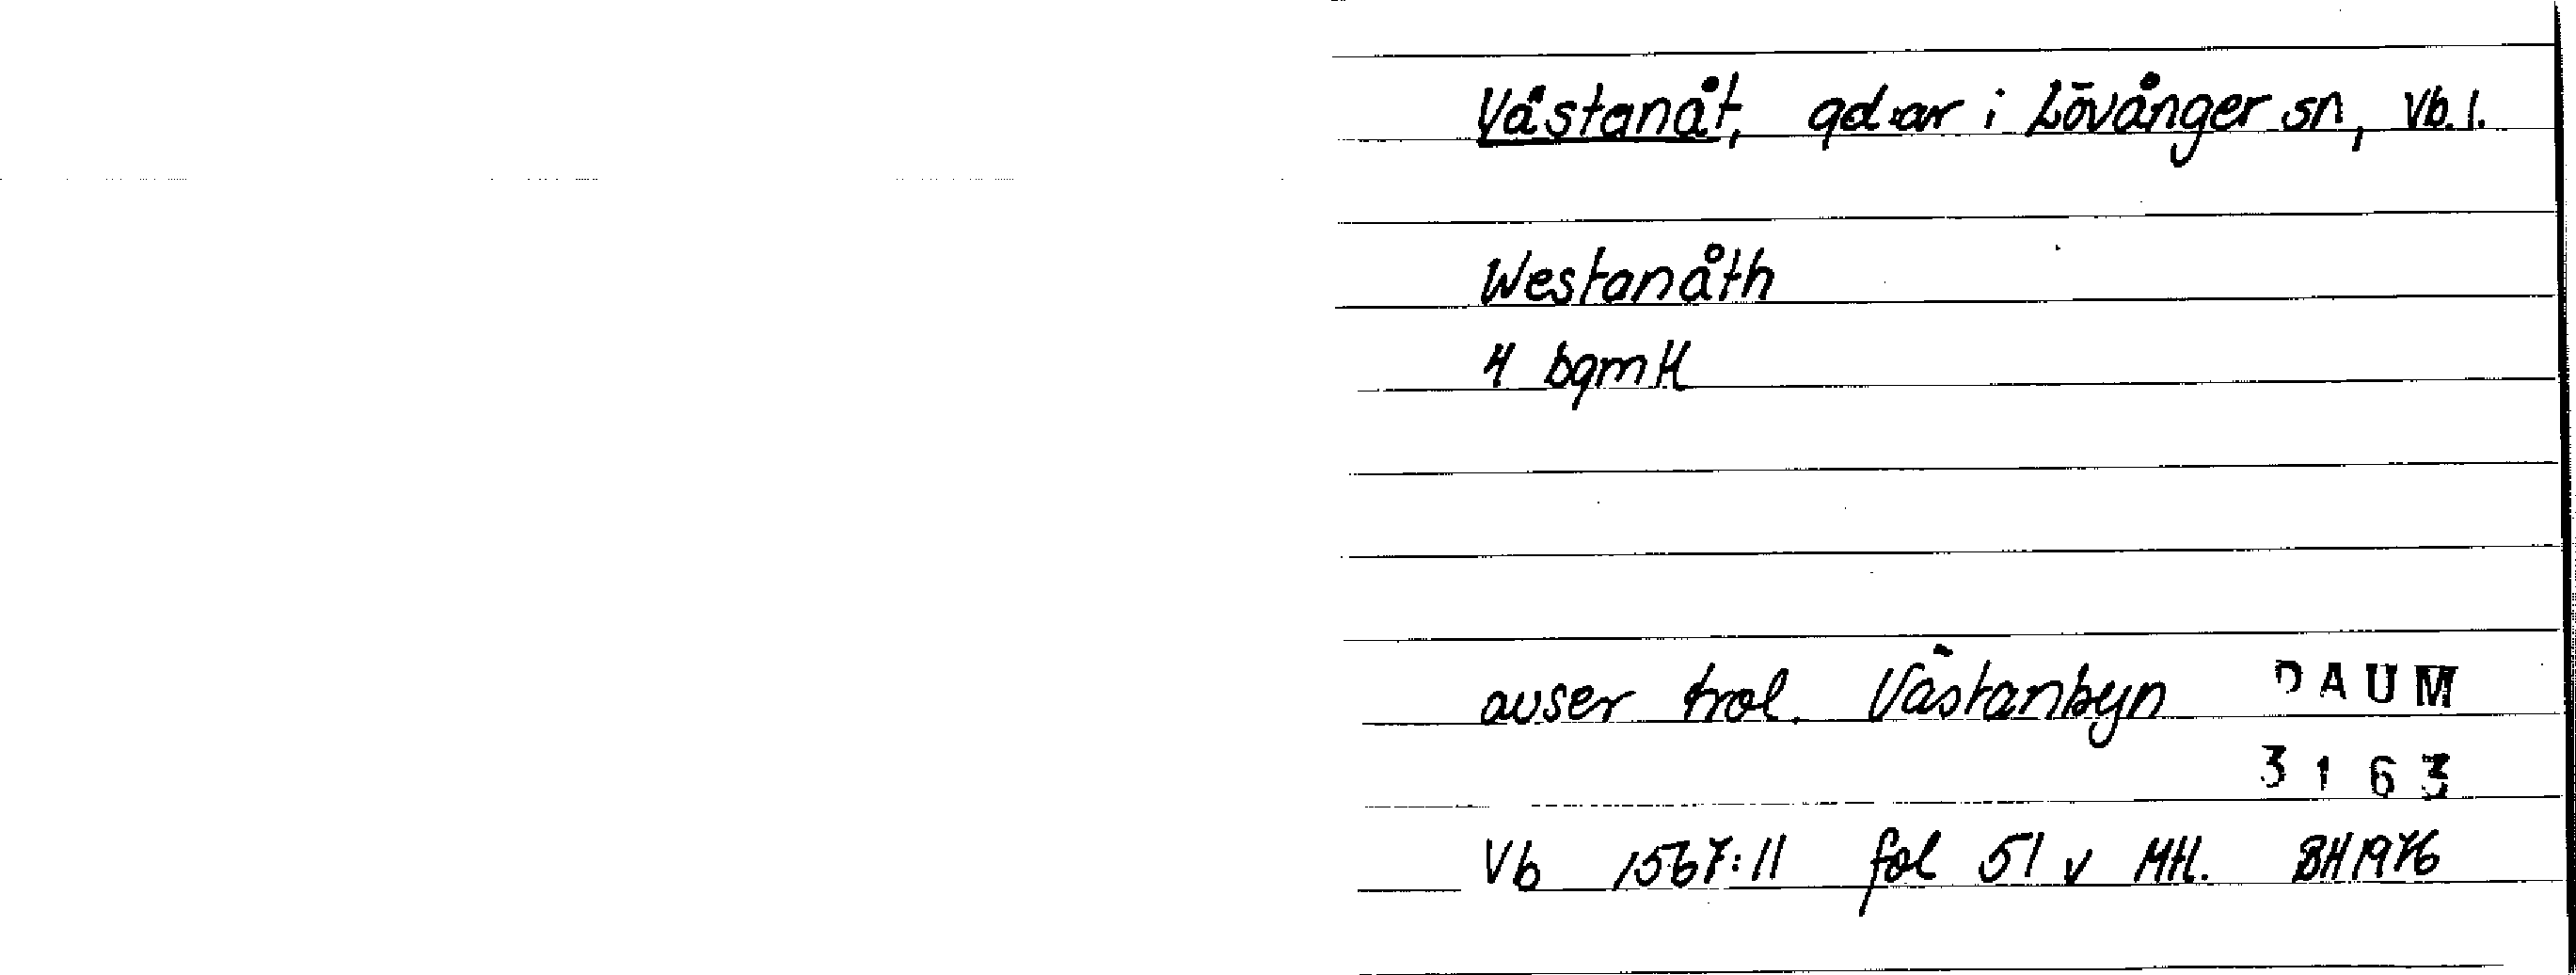 Västanåt, gd.ar i Lövånger sn, Vb.l.
Westanåth
4 bgmH
avser trol. Västanbyn DAUM
3163
Vb 1567:11 fol 51 v MH. BH 1976